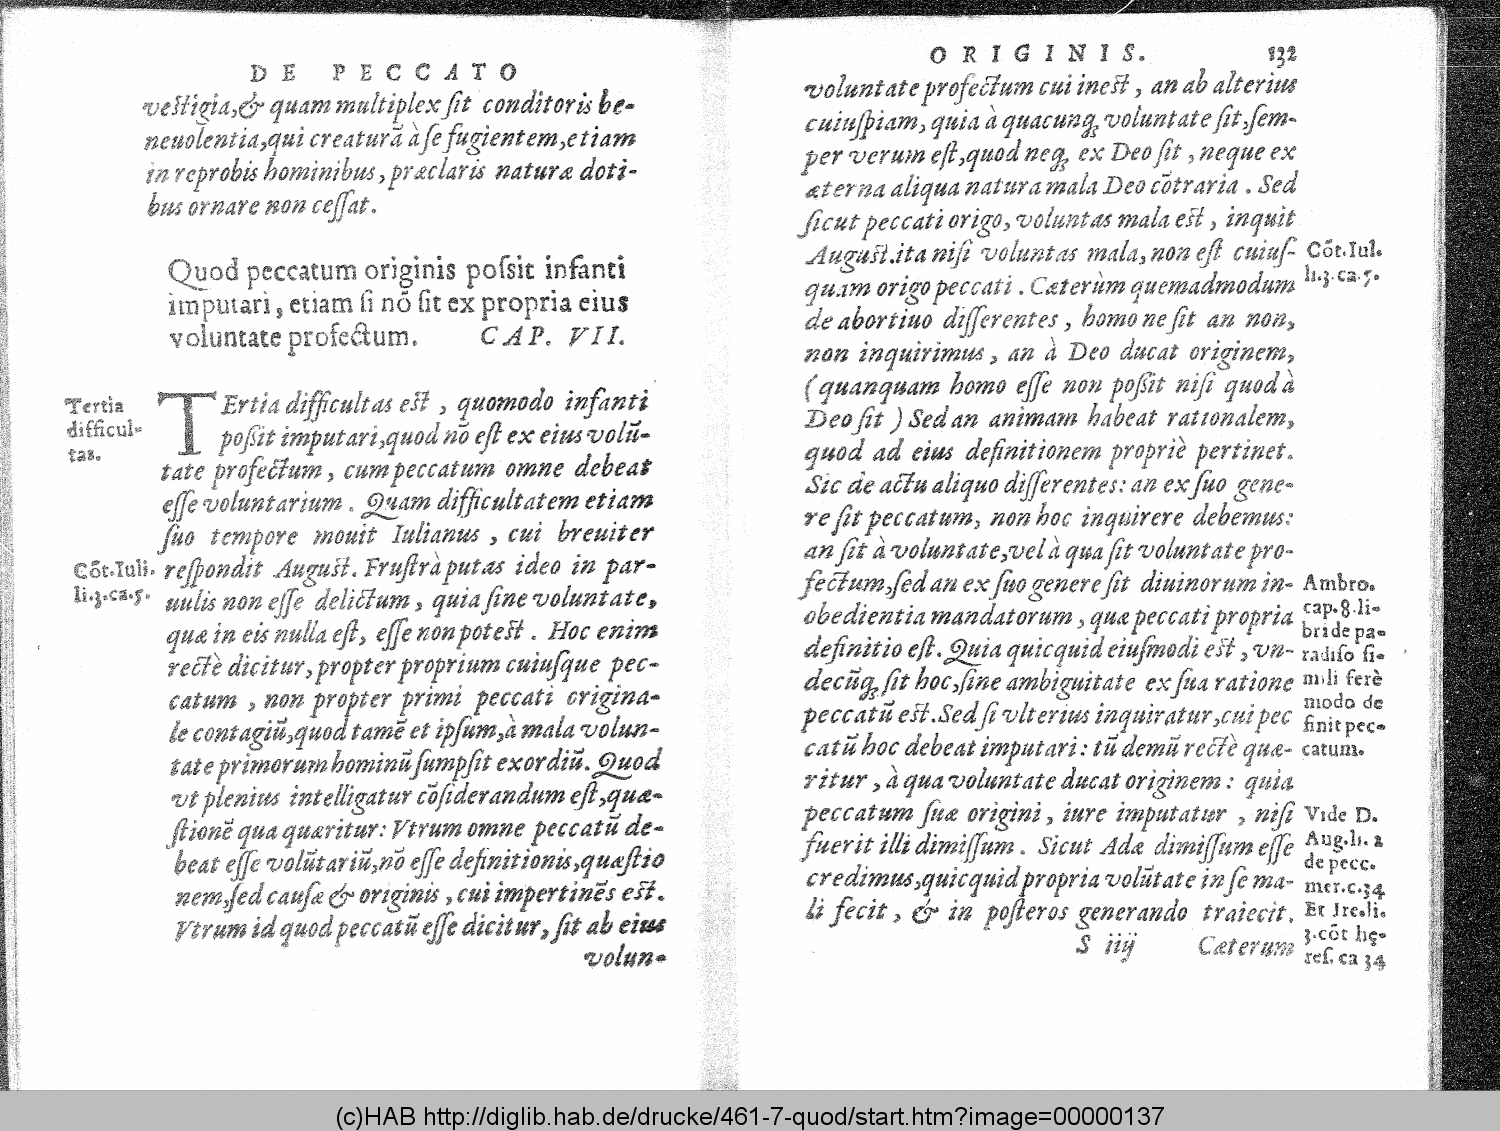 DE PECCATO
veſtigia,& quam multiplex ſit conditoris be-
neuolentia,qui creaturã à ſe fugientem,etiam
in reprobis hominibus, præclaris naturæ doti-
bus ornare non ceſſat.
Quod peccatum originis poſsit infanti
imputari, etiam ſi nõ ſit ex propria eius
voluntate profectum. CAP. VII.
Tertia
difficul-
tas.
TErtia difficultas eſt, quomodo infanti
poſsit imputari,quod nõ eſt ex eius volũ-
tate profectum, cum peccatum omne debeat
eſſe voluntarium. Quam difficultatem etiam
ſuo tempore mouit Iulianus, cui breuiter
Cõt.Iuli.
li.3.ca.5.
reſpondit Auguſt. Fruſtrà putas ideo in par-
uulis non eſſe delictum, quia ſine voluntate,
quæ in eis nulla eſt, eſſe non poteſt. Hoc enim
rectè dicitur, propter proprium cuiuſque pec-
catum, non propter primi peccati origina-
le contagiũ,quod tamẽ et ipſum,à mala volun-
tate primorum hominũ ſumpſit exordiũ. Quod
vt plenius intelligatur cõſiderandum eſt,quæ-
ſtionẽ qua quæritur: Vtrum omne peccatũ de-
beat eſſe volũtariũ,nõ eſſe definitionis,quæſtio
nem,ſed cauſæ & originis, cui impertinẽs eſt.
Vtrum id quod peccatũ eſſe dicitur, ſit ab eius
volun-
ORIGINIS. 132
voluntate profectum cui ineſt, an ab alterius
cuiuſpiam, quia à quacunq; voluntate ſit,ſem-
per verum eſt,quod neq; ex Deo ſit, neque ex
æterna aliqua natura mala Deo cõtraria. Sed
ſicut peccati origo, voluntas mala eſt, inquit
Auguſt.ita niſi voluntas mala, non eſt cuiuſ-
quam origo peccati. Cæterùm quemadmodum
de abortiuo differentes, homo ne ſit an non,
non inquirimus, an à Deo ducat originem,
(quanquam homo eſſe non poſsit niſi quod à
Deo ſit) Sed an animam habeat rationalem,
quod ad eius definitionem propriè pertinet.
Sic de actu aliquo differentes: an ex ſuo gene-
re ſit peccatum, non hoc inquirere debemus:
an ſit à voluntate,vel à qua ſit voluntate pro-
fectum,ſed an ex ſuo genere ſit diuinorum in-
obedientia mandatorum, quæ peccati propria
definitio eſt. Quia quicquid eiuſmodi eſt, vn-
decũq; ſit hoc,ſine ambiguitate ex ſua ratione
peccatũ eſt.Sed ſi vlterius inquiratur,cui pec
catũ hoc debeat imputari: tũ demũ rectè quæ-
ritur, à qua voluntate ducat originem: quia
peccatum ſuæ origini, iure imputatur, niſi
fuerit illi dimiſſum. Sicut Adæ dimiſſum eſſe
credimus,quicquid propria volũtate in ſe ma-
li fecit, & in poſteros generando traiecit.
S iiij Cæterum
Cõt.Iul.
li.3.ca.5.
Ambro.
cap.8.li-
bri de pa-
radiſo ſi-
mili ferè
modo de
finit pec-
catum.
Vide D.
Aug.li.2
de pecc.
mer.c.34
Et Ire.li.
3.cõt hę-
reſ. ca 34
(c)HAB http://diglib.hab.de/drucke/461-7-quod/start.htm?image=00000137